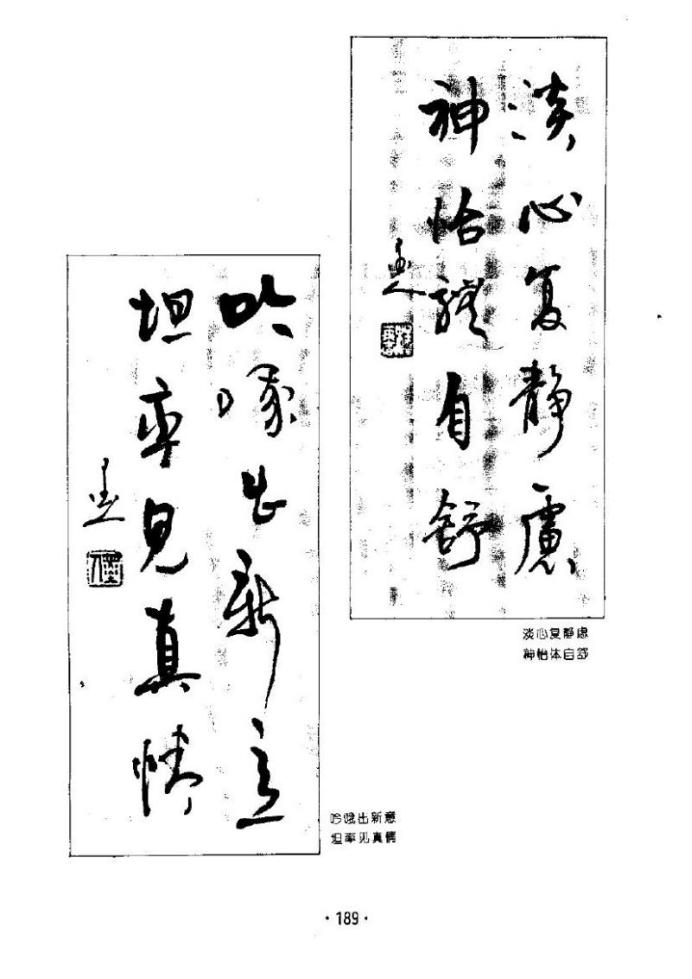 淡心复靜慮
神怡體自舒
淡心复静虑
神怡体自舒
吟哦出新意
坦率見真情
吟哦出新意
坦率见真情
·189·